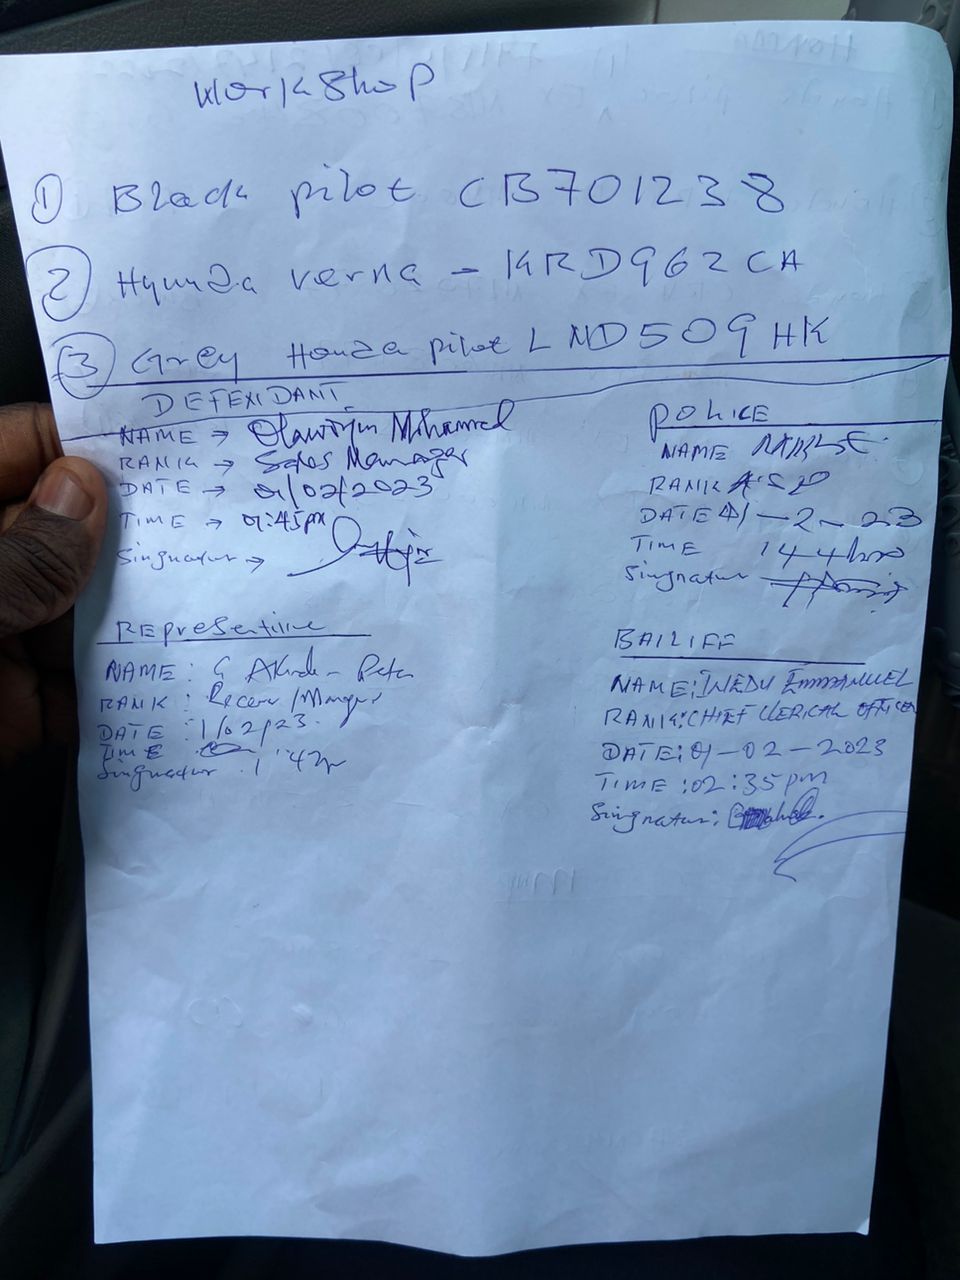 WorkShop
① Black pilot CB701238
② Hyunda verna - KRD962CA
③ Grey Honda pilot LND509HK
DEFENDANT
NAME → Olawoyin Mohammed
RANK → Sales Manager
DATE → 01/02/2023
TIME → 01:45pm
Singnatur →
POLICE
NAME
RANK A.S.P
DATE 01-2-23
TIME 144hrs
Singnatur
REpresentiive
NAME: Peter
RANK: Manager
DATE: 1/02/23.
TIME
Singnatur. 1'42
BAILIFF
NAME: INEDU EMMANUEL
RANK: CHIEF CLERICAL OFFICER
DATE: 01-02-2023
TIME: 02:35pm
Singnatur: